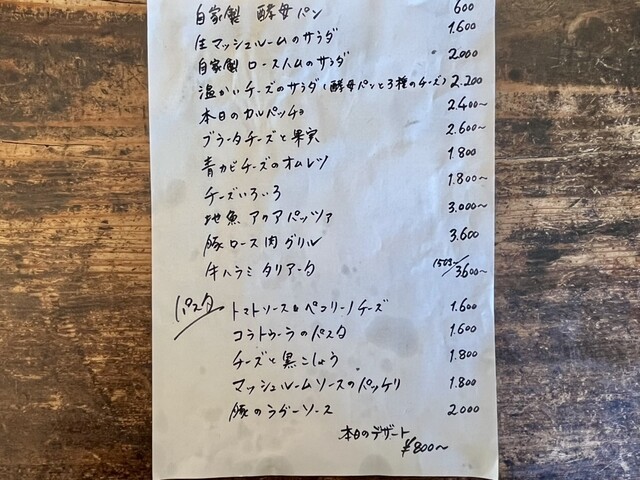 自家製 酵母パン 600
生マッシュルームのサラダ 1.600
自家製 ロースハムのサラダ 2.000
温かいチーズのサラダ(酵母パンと3種のチーズ) 2.200
本日のカルパッチョ 2.400~
ブラータチーズと果実 2.600~
青カビチーズのオムレツ 1.800
チーズいろいろ 1.800~
地魚 アクアパッツァ 3.000~
豚ロース肉グリル 3.600
牛ハラミ タリアータ 150g~/3600~
パスタ トマトソースとペコリーノチーズ 1.600
コラトゥーラのパスタ 1.600
チーズと黒こしょう 1.800
マッシュルームソースのパッケリ 1.800
豚のラグーソース 2000
本日のデザート
¥800~